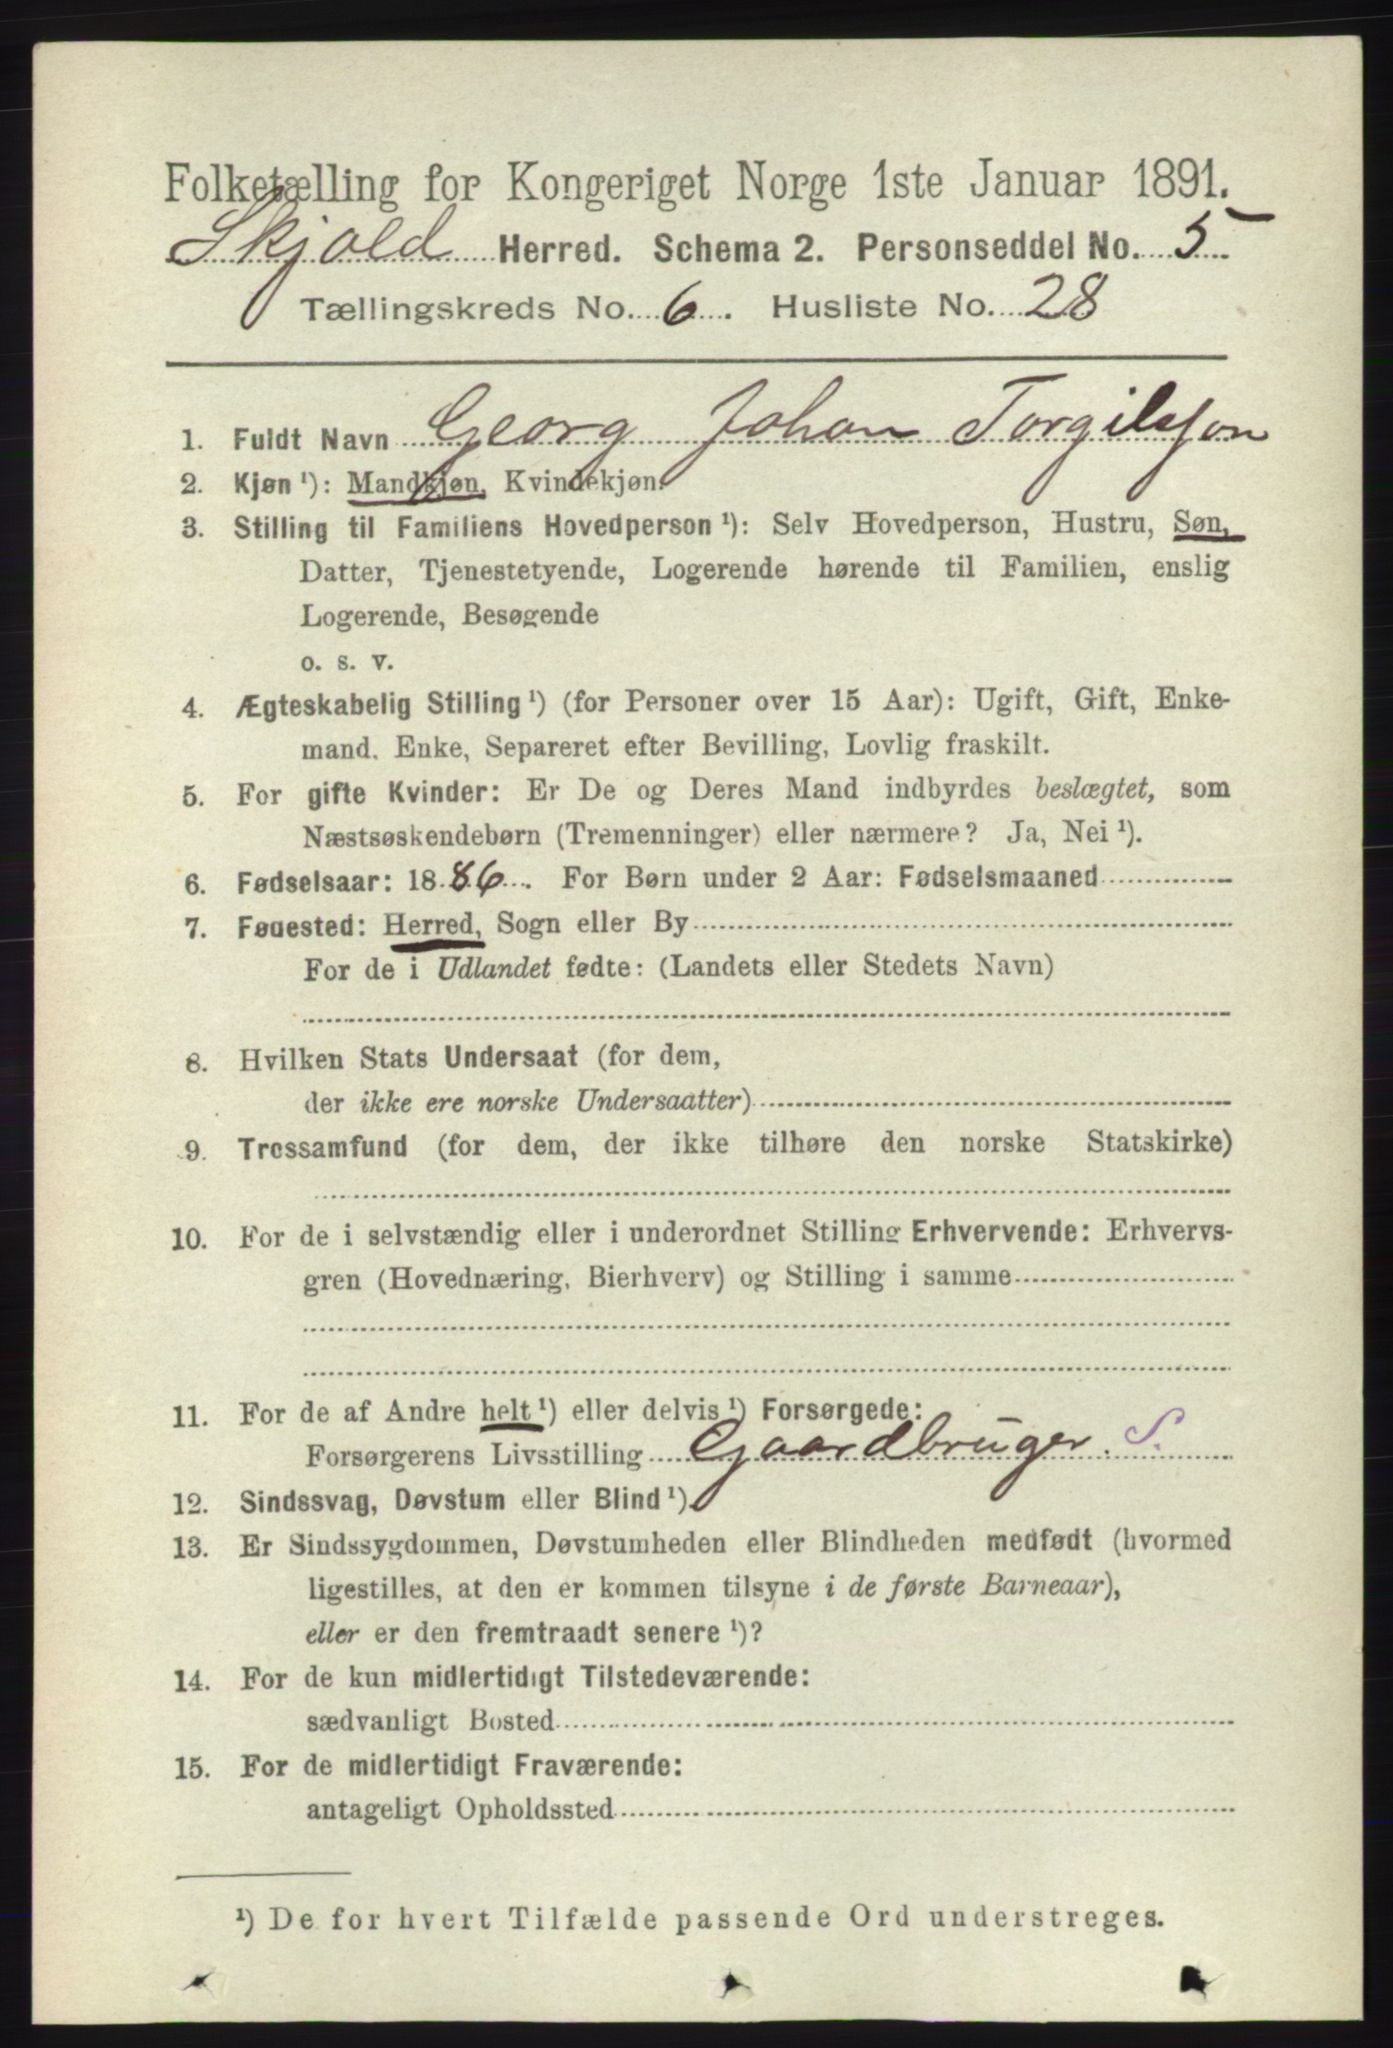 Folketælling for Kongeriget Norge 1ste Januar 1891.
Skjold Herred. Schema 2. Personseddel No. 5
Tællingskreds No. 6. Husliste No. 28
1. Fuldt Navn Georg Johan Torgilsson
2. Kjøn ¹): Mandkjøn, Kvindekjøn.
3. Stilling til Familiens Hovedperson ¹): Selv Hovedperson, Hustru, Søn,
Datter, Tjenestetyende, Logerende hørende til Familien, enslig
Logerende, Besøgende
o. s. v.
4. Ægteskabelig Stilling ¹) (for Personer over 15 Aar): Ugift, Gift, Enke-
mand, Enke, Separeret efter Bevilling, Lovlig fraskilt.
5. For gifte Kvinder: Er De og Deres Mand indbyrdes beslægtet, som
Næstsøskendebørn (Tremenninger) eller nærmere? Ja, Nei ¹).
6. Fødselsaar: 1886. For Børn under 2 Aar: Fødselsmaaned
7. Fødested: Herred, Sogn eller By
For de i Udlandet fødte: (Landets eller Stedets Navn)
8. Hvilken Stats Undersaat (for dem,
der ikke ere norske Undersaatter)
9. Trossamfund (for dem, der ikke tilhøre den norske Statskirke)
10. For de i selvstændig eller i underordnet Stilling Erhvervende: Erhvervs-
gren (Hovednæring, Bierhverv) og Stilling i samme
11. For de af Andre helt ¹) eller delvis ¹) Forsørgede:
Forsørgerens Livsstilling Gaardbruger. S.
12. Sindssvag, Døvstum eller Blind ¹).
13. Er Sindssygdommen, Døvstumheden eller Blindheden medfødt (hvormed
ligestilles, at den er kommen tilsyne i de første Barneaar),
eller er den fremtraadt senere ¹)?
14. For de kun midlertidigt Tilstedeværende:
sædvanligt Bosted
15. For de midlertidigt Fraværende:
antageligt Opholdssted
¹) De for hvert Tilfælde passende Ord understreges.